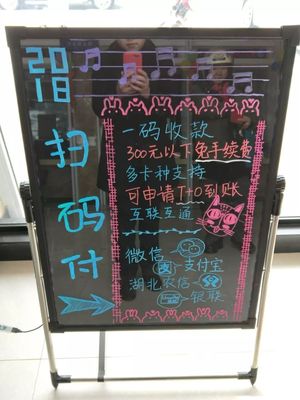 2018
扫码付
一码收款
300元以下免手续费
多卡种支持
可申请1+0到账
互联互通
微信
支付宝
湖北农信
银联